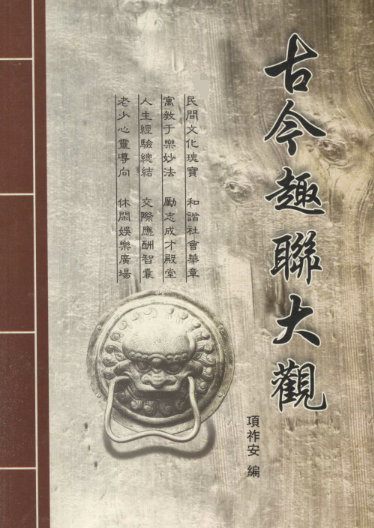 古今趣聯大觀
民間文化瑰寶 和諧社會華章
寓教于樂妙法 勵志成才殿堂
人生經驗總結 交際應酬智囊
老少心靈導向 休閒娛樂廣場
項祚安 編